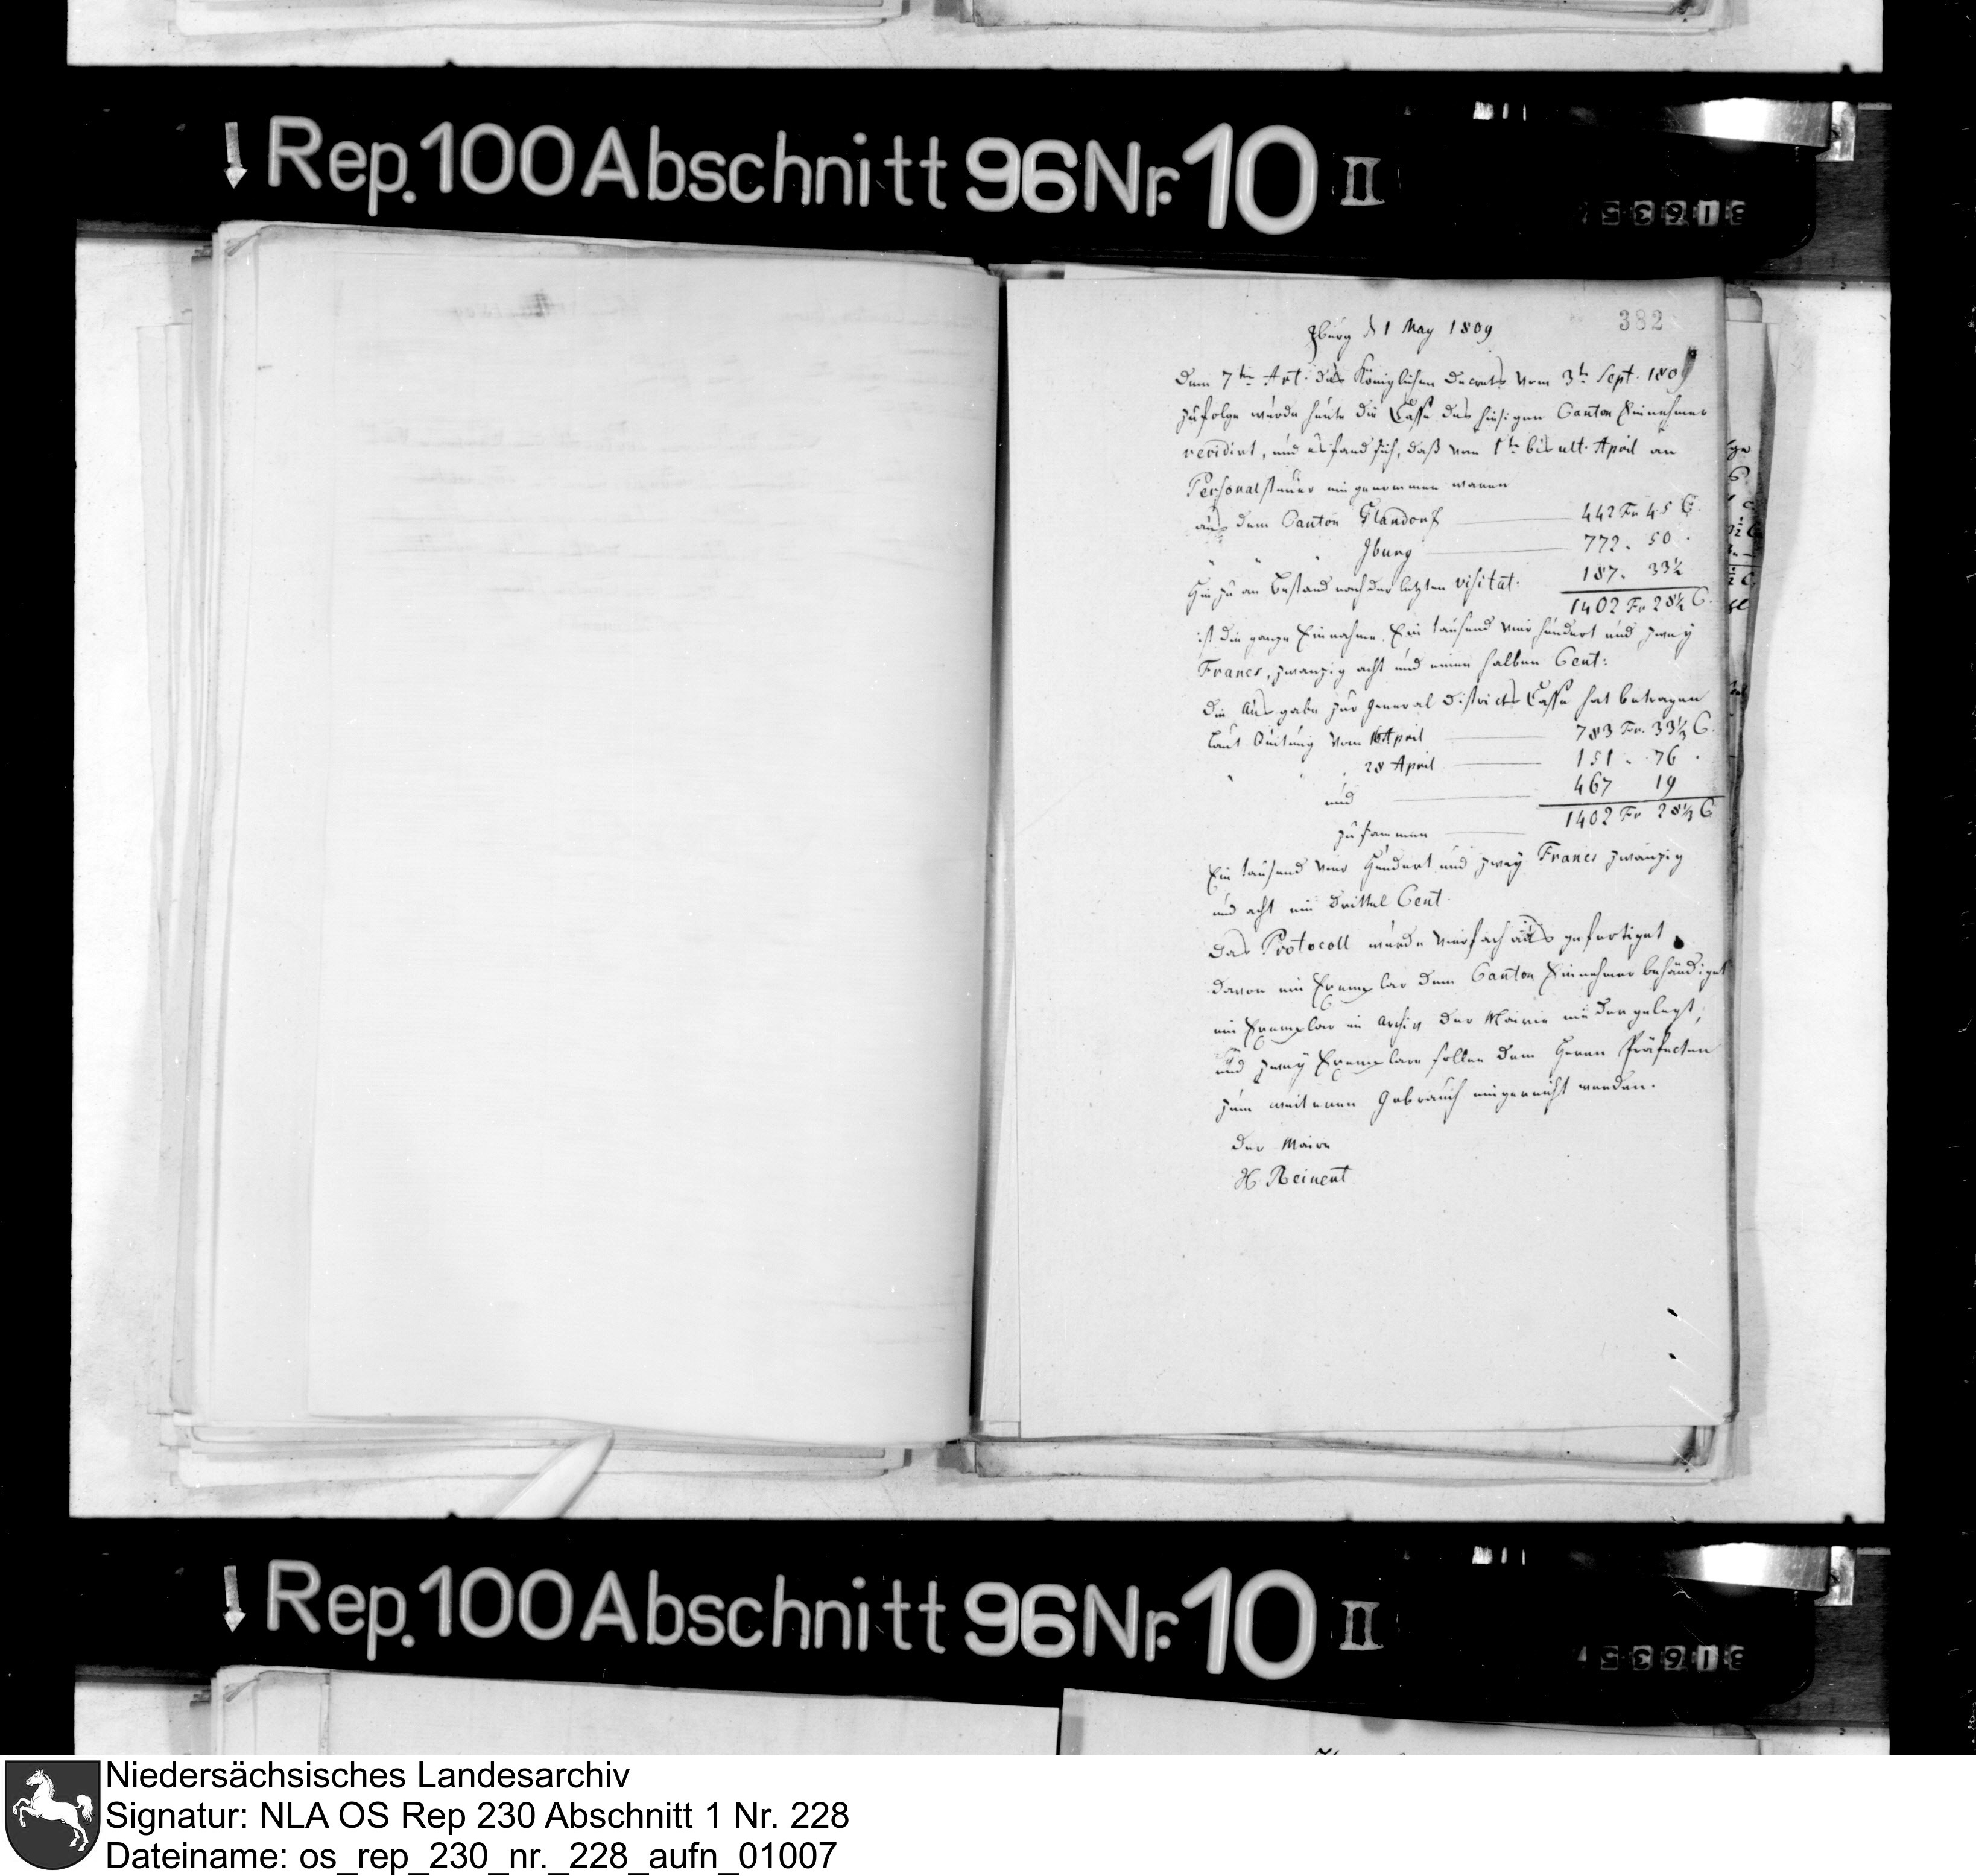 Rep. 100 Abschnitt 96 Nr. 10 II
382
Iburg d 1 May 1809
Dem 7ten Art. des Königlichen Decrets vom 3t Sept. 180
zufolge wurde heute die Casse des hiesigen Canton Einnehmer
revidirt, und es fand sich, daß vom 1ten bis ult. April an
Personalsteuer eingenommen waren
aus dem Canton Glandorf 442 Fr 45 C.
" " " Iburg 772 . 50 .
Hin zu an Bestand nach der letzten visitat. 187. 33½
1402 Fr 28½ C.
ist die ganze Einnahme. Ein tausend vier hundert und zwey
Francs, zwanzig acht und einen halben Cent:
Die Ausgabe zur General Districts Casse hat betragen
laut Quitung vom 16 April 783 Fr. 33⅓ C.
" " 28 April 151 . 76 .
und 467 19
zusammen 1402 Fr 28⅓ C
Ein tausend vier Hundert und zwey Francs zwanzig
und acht ein drittel Cent.
Das Protocoll wurde vierfach ausgefertiget
davon ein Exemplar dem Canton Einnehmer behändiget
ein Exemplar im Archiv der Mairie niedergelegt,
und zwey Exemplare sollen dem Herrn Präfecten
zum weiteren Gebrauch eingereicht werden.
Der Maire
H Reinent
Rep. 100 Abschnitt 96 Nr. 10 II
Niedersächsisches Landesarchiv
Signatur: NLA OS Rep 230 Abschnitt 1 Nr. 228
Dateiname: os_rep_230_nr._228_aufn_01007